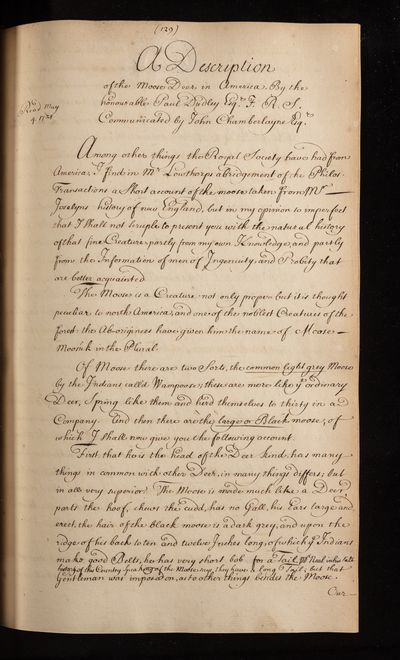 (129)
A Description
of the Moose Deer in America. By the
honourable Paul Dudley Esqr. F. R. S.
Communicated by John Chamberlayne Esqr.
Read May
Among other things the Royal Society have had from
America, I find in Mr Lowthorps abridgement of the Philos.
Transactions a Short account of the moose taken from Mr
Josselyns history of new England, but in my opinion so imperfect
that I shall not scruple to present you with the natural history
of that fine Creature partly from my own Knowledge, and partly
from the Information of men of Ingenuity, and Probity that
are better acquainted.
The Moose is a Creature not only proper but it is thought
peculiar to north America, and one of the noblest Creatures of the
forest the Aborigines have given him the name of Moose
Moosuk in the Plural.
Of Moose there are two Sorts, the common light grey Moose
by the Indians call'd Wampoose; these are more like ye ordinary
Deer, Spring like them and herd themselves to thirty in a
Company. And then there are the large or Black moose, of
which I shall now give you the following account.
First that he is the head of the Deer kind, has many
things in common with other Deer, in many things differs, but
in all very superior. The Moose is made much like a Deer,
parts the hoof, chews the cudd, has no Gall, his Ears large and
erect, the hair of the Black moose is a dark grey, and upon the
ridge of his back is ten and twelve Inches long, of which ye Indians
make good Belts, he has very short bob for a Tail. Mr Neal in his late
history of this Country speaking of the Moose says, they have a long Tail, but that
Gentleman was imposed on, as to other things besides the Moose.
Our